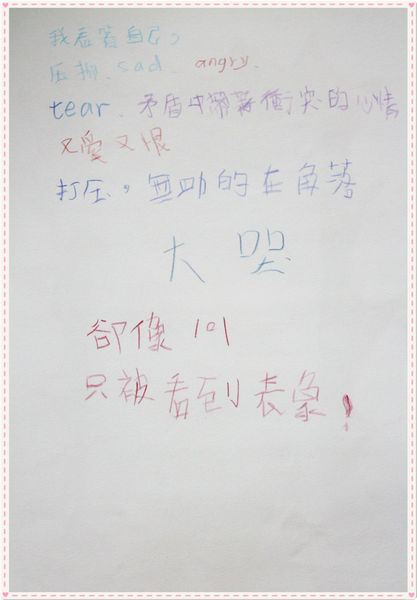 我看著自己，
压抑、sad、angry、
tear、矛盾中帶著衝突的心情
又愛又恨
打压，無助的在角落
大哭
卻像101
只被看到表象！